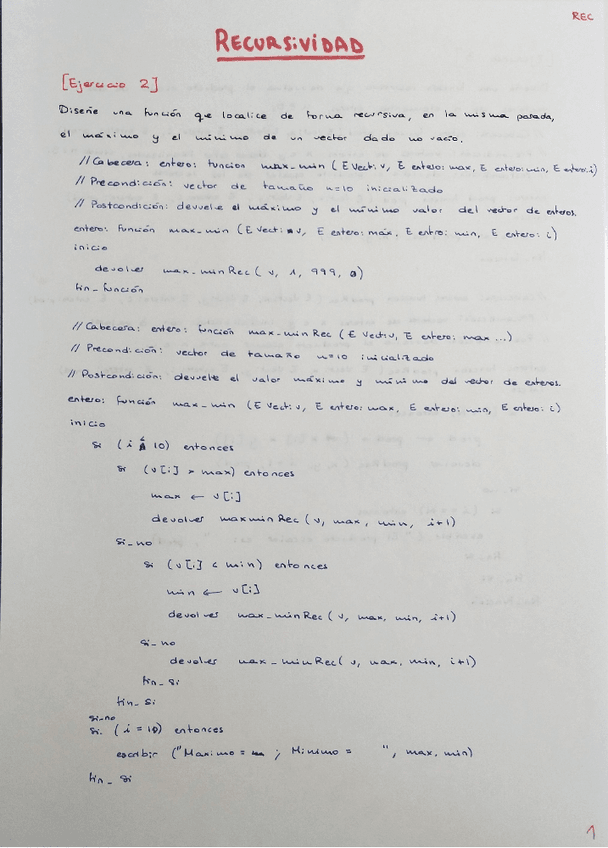 REC
RECURSIVIDAD
[Ejercicio 2]
Diseñe una función que localice de forma recursiva, en la misma pasada,
el máximo y el mínimo de un vector dado no vacío.
// Cabecera: entero: funcion max_min (E Vect: v, E entero: max, E entero: min, E entero: i)
// Precondición: vector de tamaño n=10 inicializado
// Postcondición: devuelve el máximo y el mínimo valor del vector de enteros.
entero: función max_min (E Vect: v, E entero: máx, E entro: min, E entero: i)
inicio
devolver max_minRec ( v, 1, 999, 0)
fin_función
// Cabecera: entero: función max_min Rec (E Vect: v, E entero: max ...)
// Precondición: vector de tamaño n=10 inicializado
// Postcondición: devuelve el valor máximo y mínimo del vector de enteros.
entero: función max_min (E Vect: v, E entero: max, E entero: min, E entero: i)
inicio
si (i 10) entonces
si (v[i] > max) entonces
max ← v[i]
devolver maxminRec (v, max, min, i+1)
si_no
si (v[i] < min) entonces
min ← v[i]
devolver max_minRec (v, max, min, i+1)
si_no
devolver max_minRec( v, max, min, i+1)
fin_si
fin_si
si_no
si (i = 10) entonces
escribir ("Maximo = ; Minimo = ", max, min)
fin_si
1